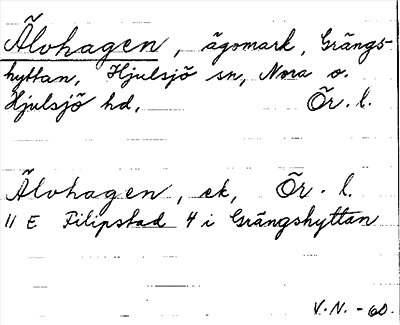 Älvhagen, ägomark, Grängs-
hyttan, Hjulsjö sn, Nora o.
Hjulsjö hd, Ör. l.
Älvhagen, ek, Ör. l.
11 E Filipstad 4 i Grängshyttan
V.N. -60.